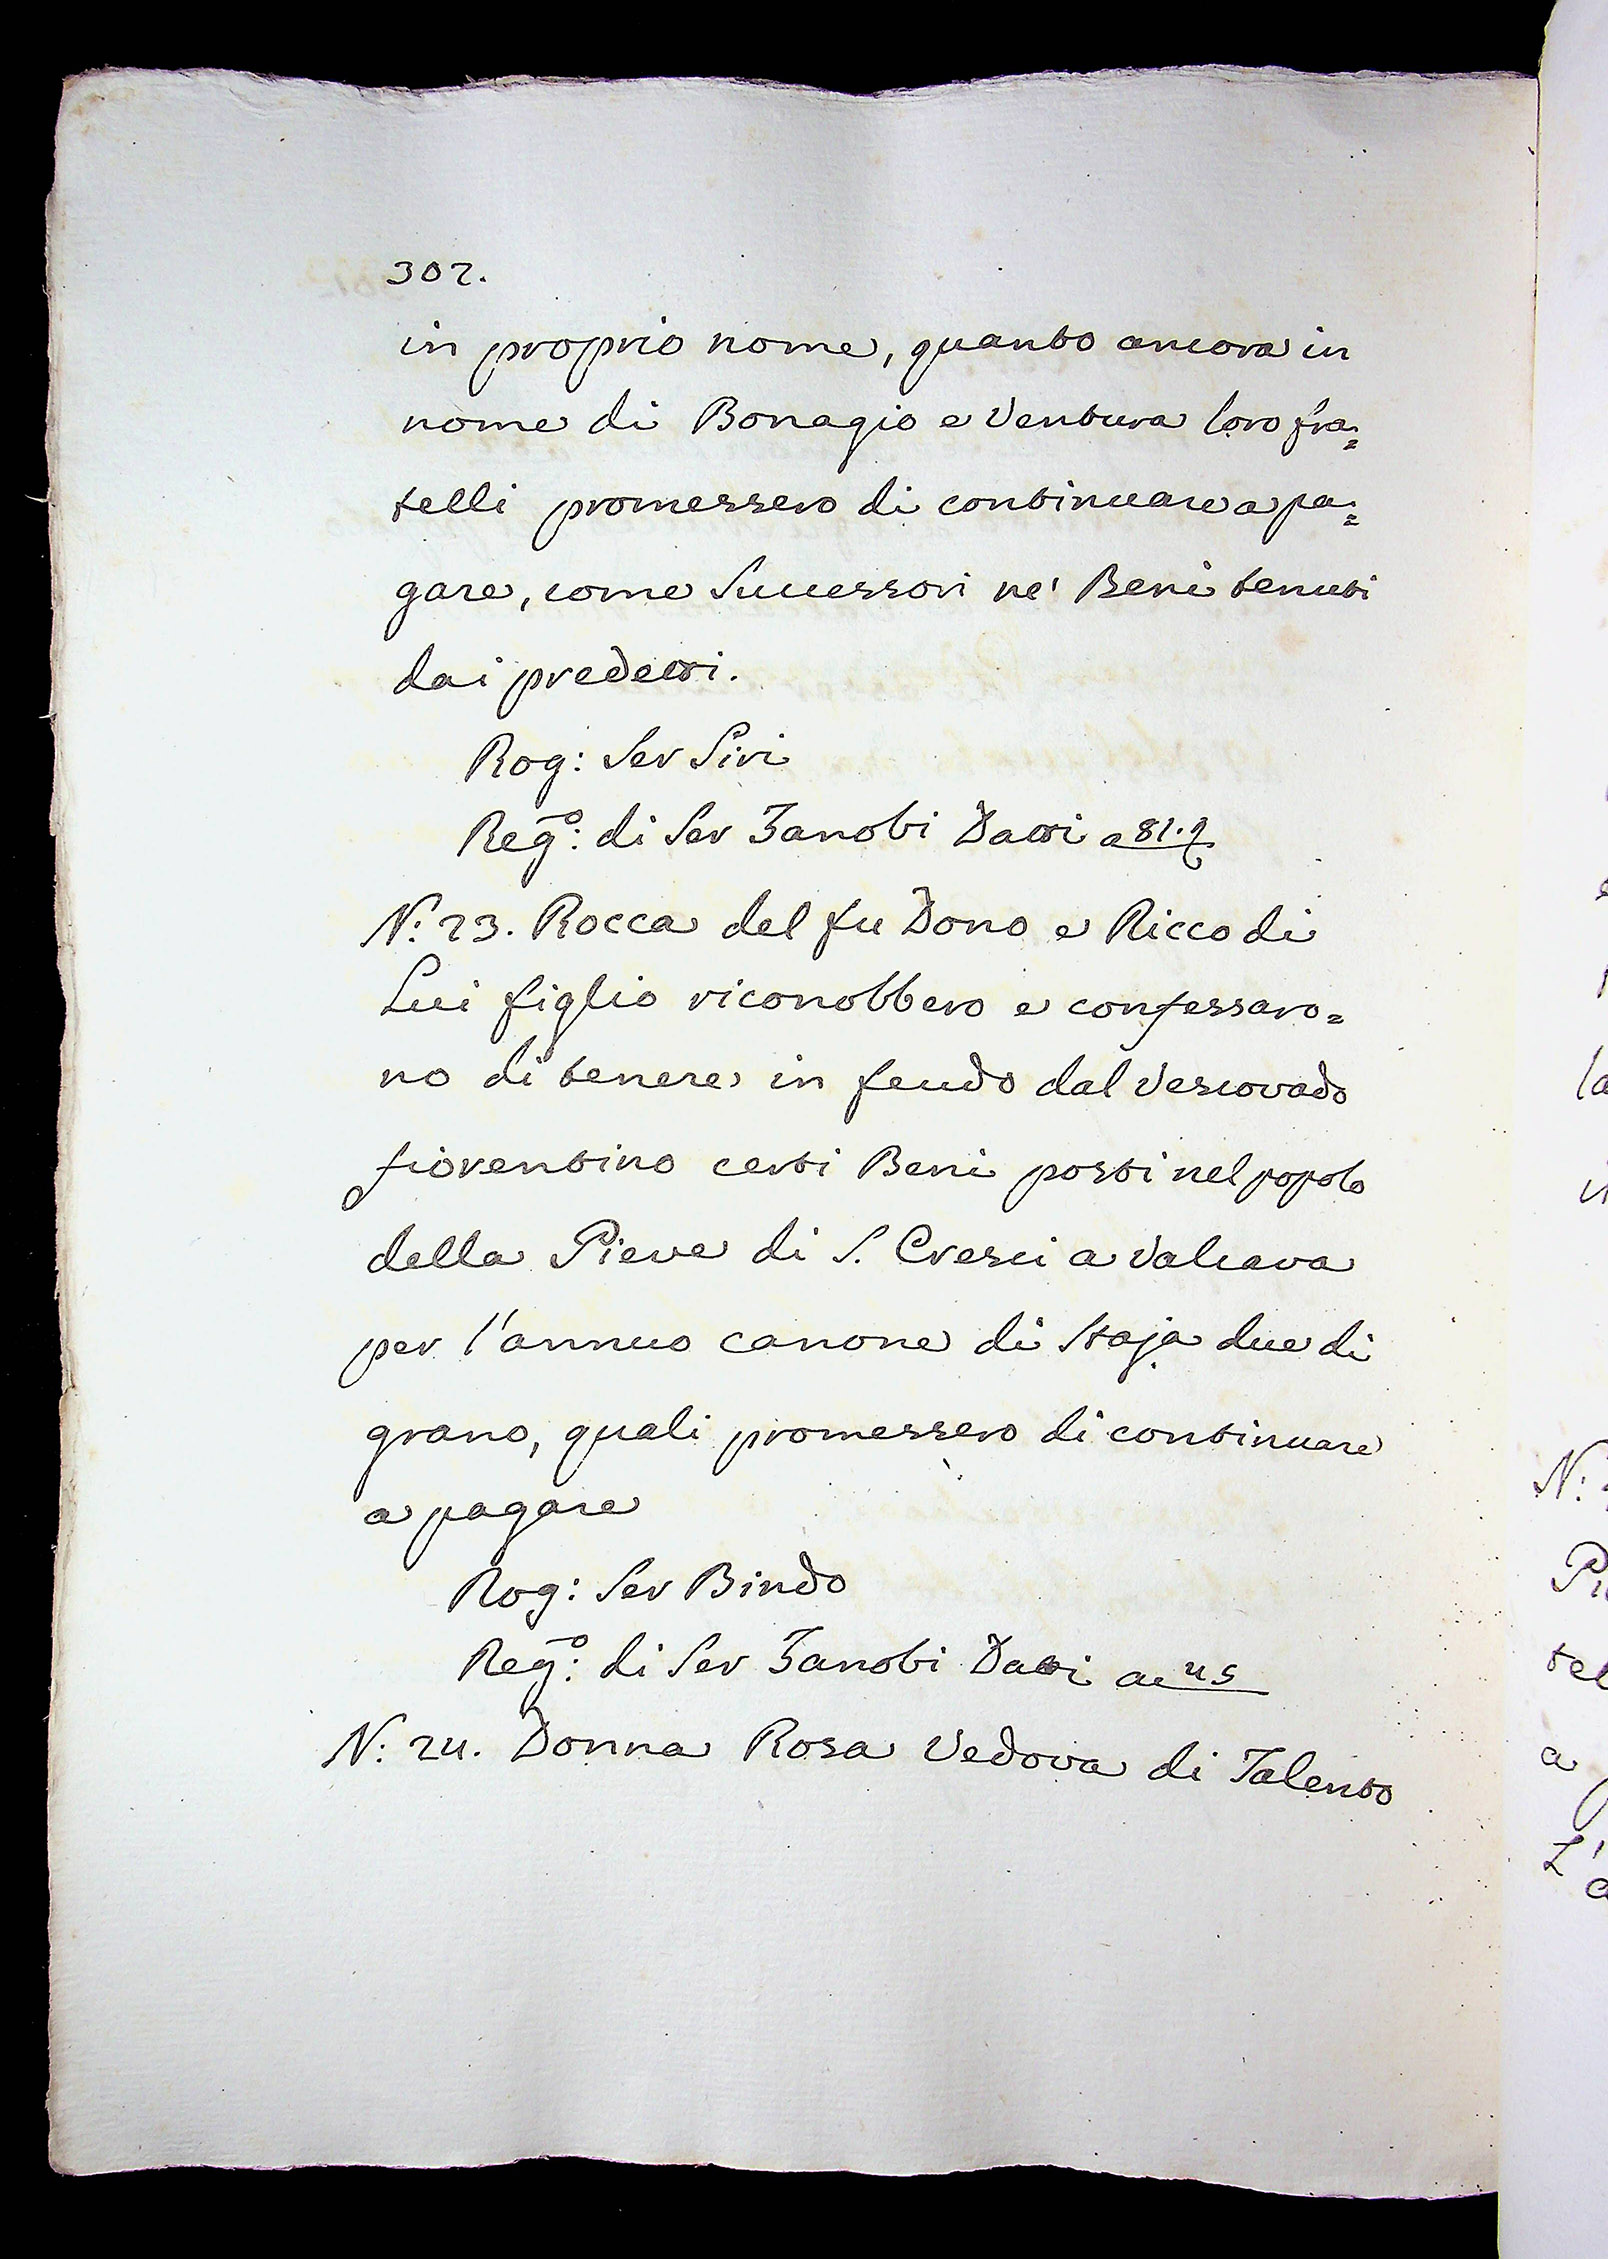 302.
in proprio nome, quanto ancora in
nome di Bonagio e Ventura loro fra=
telli promessero di continuare a pa=
gare, come Successori ne' Beni tenuti
dai predetti.
Rog: Ser Siri
Reg.º: di Ser Zanobi Datti a 81.
N: 23. Rocca del fu Dono e Ricco di
Lui figlio riconobbero e confessaro=
no di tenere in feudo dal Vescovado
fiorentino certi Beni posti nel popolo
della Pieve di S. Cresci a Valcava
per l'annuo canone di Staja due di
grano, quali promessero di continuare
a pagare
Rog: Ser Bindo
Reg.º: di Ser Zanobi Datti ac 45
N: 24. Donna Rosa Vedova di Talento